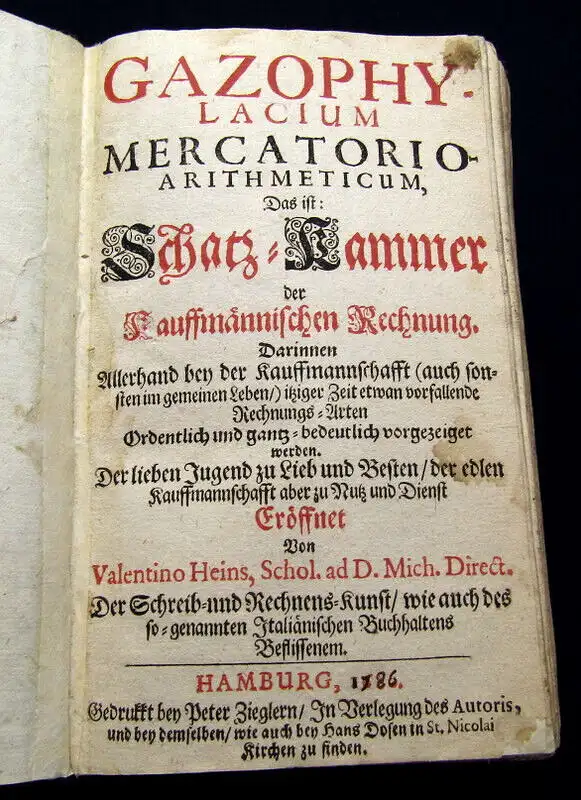 GAZOPHY-
LACIUM
MERCATORIO-
ARITHMETICUM,
Das ist:
Schatz-Kammer
der
Kauffmännischen Rechnung.
Darinnen
Allerhand bey der Kauffmannschafft (auch son-
sten im gemeinen Leben/) itziger Zeit etwan vorfallende
Rechnungs-Arten
Ordentlich und gantz-bedeutlich vorgezeiget
werden.
Der lieben Jugend zu Lieb und Besten/ der edlen
Kauffmannschafft aber zu Nutz und Dienst
Eröffnet
Von
Valentino Heins, Schol. ad D. Mich. Direct.
Der Schreib-und Rechnens-Kunst/ wie auch des
so-genannten Italiänischen Buchhaltens
Beflissenem.
HAMBURG, 1786.
Gedrukkt bey Peter Zieglern/ In Verlegung des Autoris,
und bey demselben/ wie auch bey Hans Dosen in St. Nicolai
Kirchen zu finden.